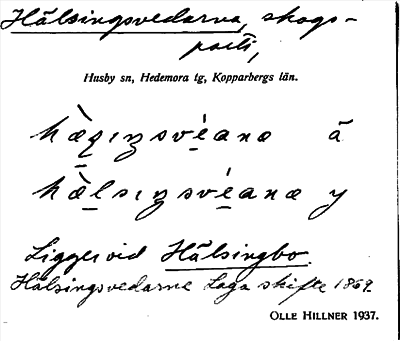 Hälsingsvedarna, skogs-
parti,
Husby sn, Hedemora tg, Kopparbergs län.
ā
y
Ligger vid Hälsingbo.
Hälsingsvedarne Laga skifte 1869.
OLLE HILLNER 1937.